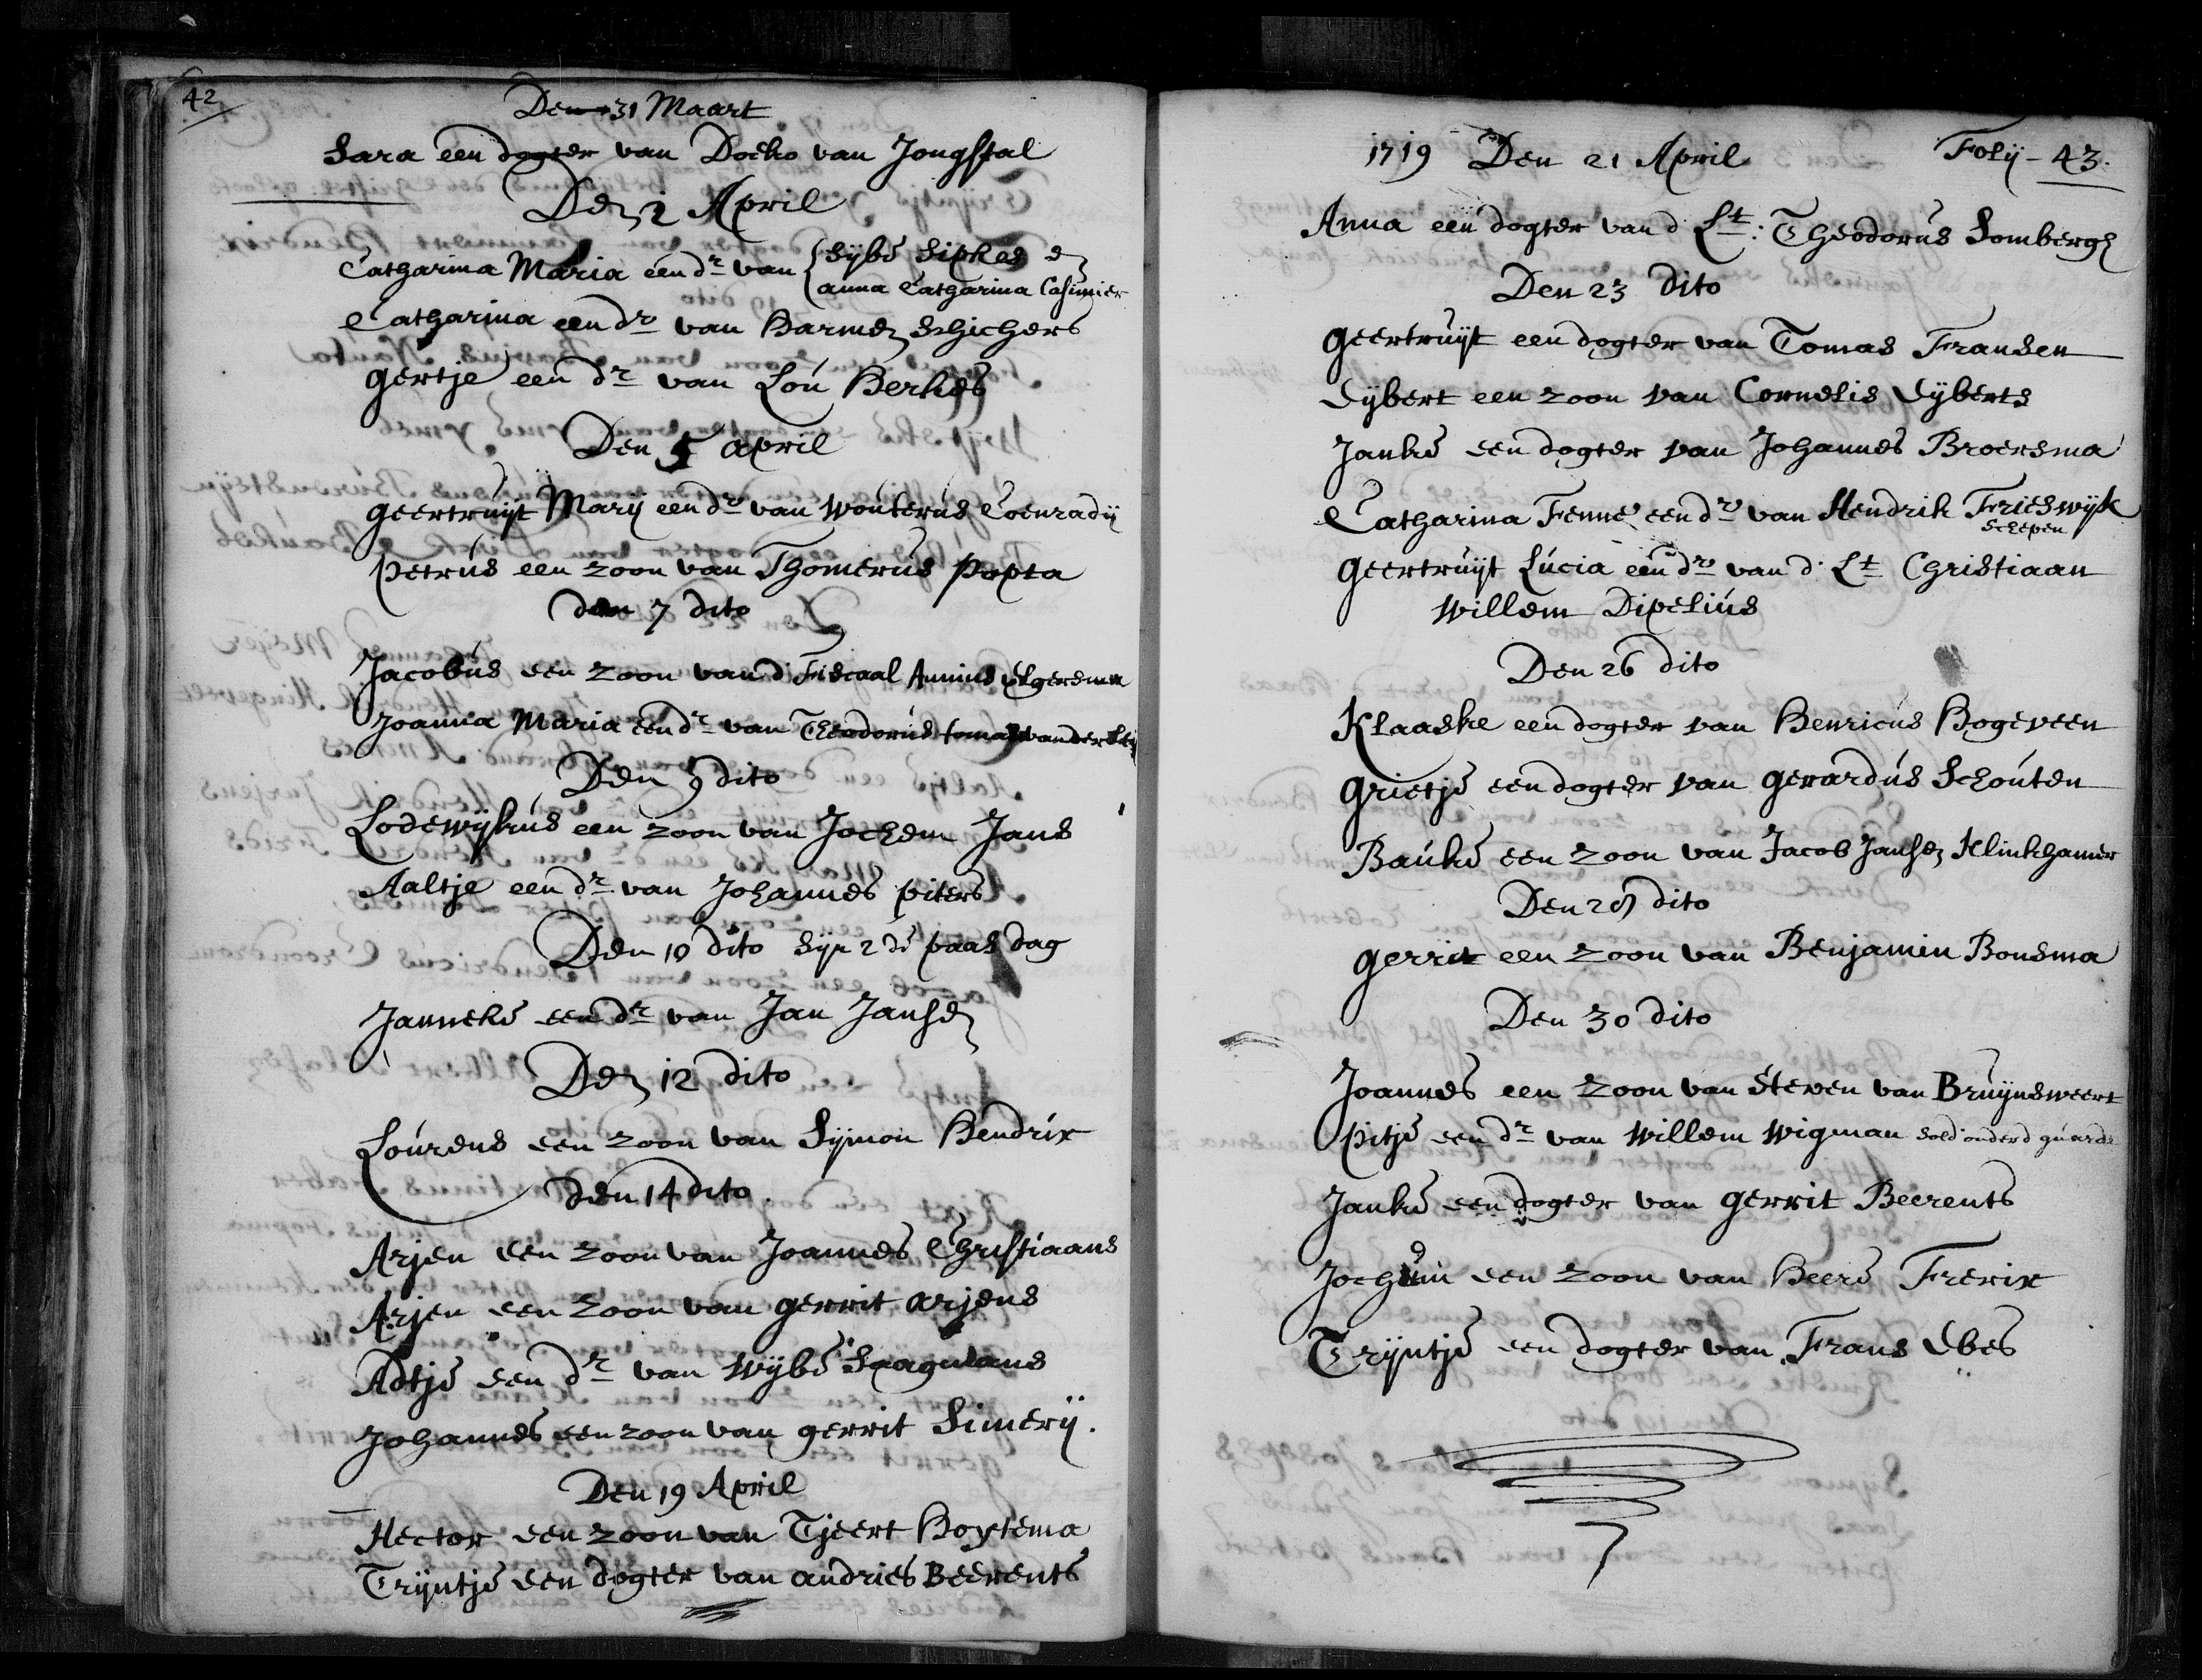 42
Den 31 Maart
Sara een dogter van Doeko van Jongstal
Den 2 April
Catharina Maria een dr van Sijbe Sipkes en
anna Catharina Casimier
Catharina een dr van Harmen Schichers
gertje een dr van Lou Berkes
Den 5 april
geertruijt Marij een dr van Wouterus Coenradij
Petrus een zoon van Thomerus Popta
den 7 dito
Jacobus een zoon van d Fiscaal Annius Elgersma
Joanna Maria een dr van Theodorus tomas van der Leij
Den 9 dito
Lodewijkus een zoon van Jochem Jans
Aaltje een dr van Johannes piters
Den 10 dito sijn 2de paas dag
Janneke een dr van Jan Jansen
Den 12 dito
Lourens een zoon van Sijmon Hendrix
Den 14 dito
Arjen een zoon van Joannes Christiaans
Arjen een zoon van gerrit arjens
Adtje een dr van Wijbe
Johannes een zoon van gerrit Simerij.
Den 19 April
Hector een zoon van Tjeert Hoytema
Trijntje een dogter van andries Beerents
1719 Den 21 April Folij - 43.
Anna een dogter van d Lt: Theodorus Sombergh
Den 23 Dito
geertruijt een dogter van Tomas Fransen
Sijbert een zoon van Cornelis Sijberts
Janke een dogter van Johannes Broersma
Catharina Fenne een dr van Hendrik Frieswijk
Schepen
geertruijt Lucia een dr van d. Lt Christiaan
Willem Dipelius
Den 26 dito
Klaaske een dogter van Henricus Hogeveen
grietje een dogter van gerardus Schouten
Bauke een zoon van Jacob Jansen Klinkhamer
Den dito
gerrit een zoon van Benjamin Bonsma
Den 30 dito
Joannes een zoon van Steven van Bruijnsweert
Pitje een dr van Willem Wigman sold onder d guarde
Janke een dogter van gerrit Beerents
Jochum een zoon van Heere Frerix
Trijntje een dogter van Frans Ebes